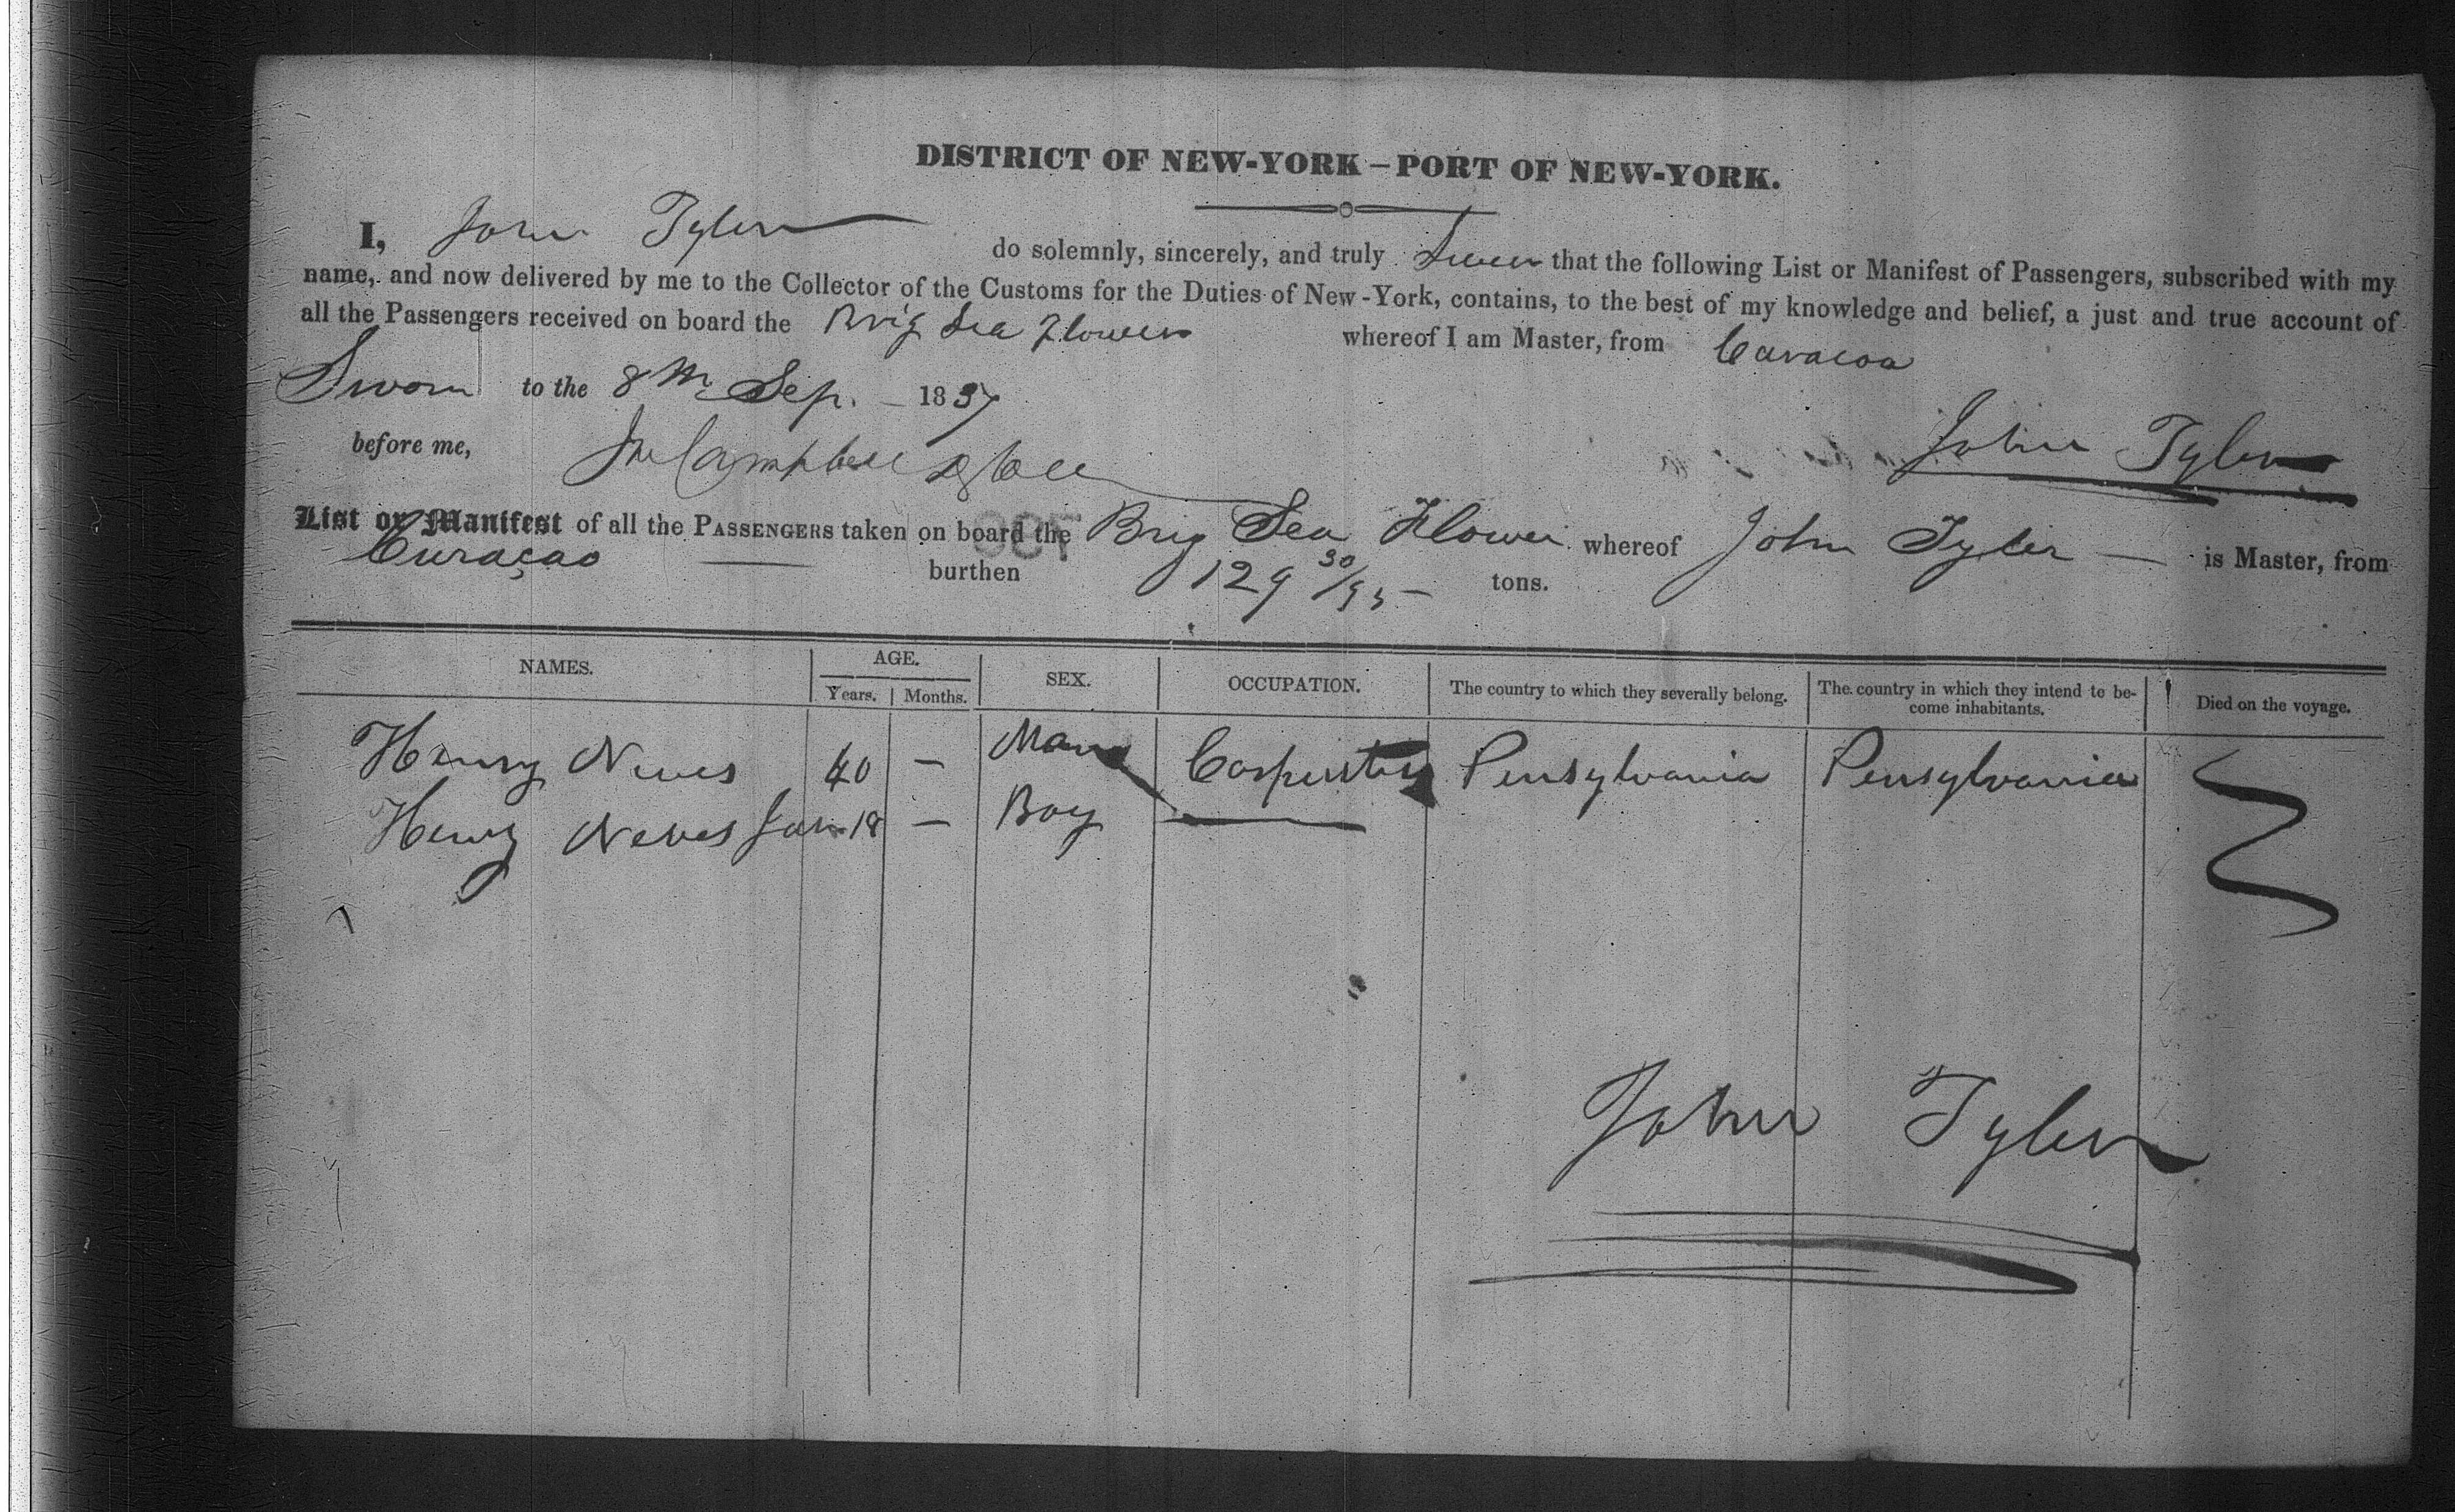 DISTRICT OF NEW-YORK — PORT OF NEW-YORK.
I, John Tyler do solemnly, sincerely, and truly Swear that the following List or Manifest of Passengers, subscribed with my
name, and now delivered by me to the Collector of the Customs for the Duties of New-York, contains, to the best of my knowledge and belief, a just and true account of
all the Passengers received on board the Brig Sea Flower whereof I am Master, from Curacoa
Sworn to the 8th Sep. 1837
before me, Campbell John Tyler
List or Manifest of all the PASSENGERS taken on board the Brig Sea Flower whereof John Tyler is Master, from
Curaçao burthen 129 30/95 tons.
NAMES. AGE. SEX. OCCUPATION. The country to which they severally belong. The country in which they intend to be-come inhabitants. Died on the voyage.
Years. Months.
Henry Neves 40 — Man Carpenter Pensylvania Pensylvania
Henry Neves Jun 18 — Boy —
John Tyler